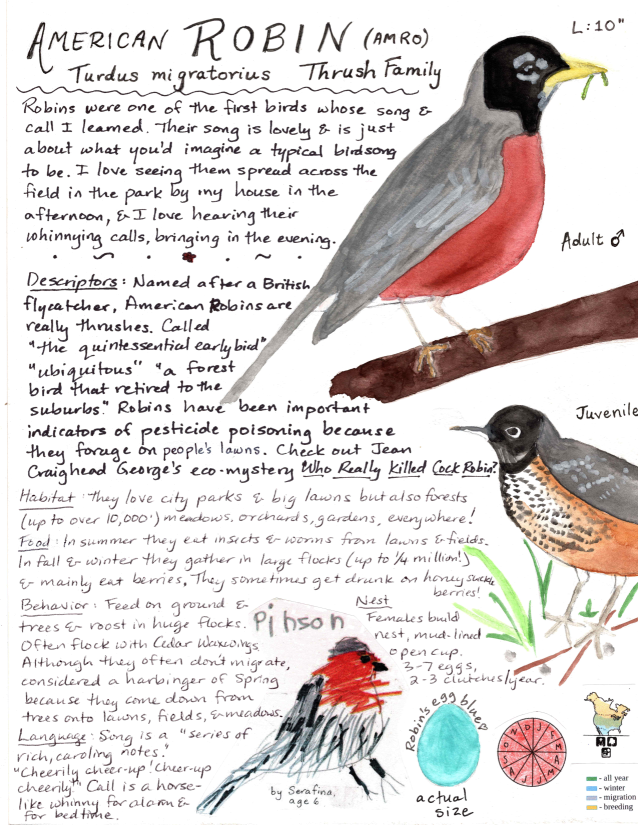 AMERICAN ROBIN (AMRO)
L: 10"
Turdus migratorius Thrush Family
Robins were one of the first birds whose song &
call I learned. Their song is lovely & is just
about what you'd imagine a typical birdsong
to be. I love seeing them spread across the
field in the park by my house in the
afternoon, & I love hearing their
whinnying calls, bringing in the evening.
Adult ♂
Descriptors: Named after a British
flycatcher, American Robins are
really thrushes. Called
"the quintessential early bird"
"ubiquitous" "a forest
bird that retired to the
suburbs." Robins have been important
indicators of pesticide poisoning because
they forage on people's lawns. Check out Jean
Craighead George's eco-mystery Who Really Killed Cock Robin?
Juvenile
Habitat: They love city parks & big lawns but also forests
(up to over 10,000') meadows, orchards, gardens, everywhere!
Food: In summer they eat insects & worms from lawns & fields.
In fall & winter they gather in large flocks (up to 1/4 million!)
& mainly eat berries. They sometimes get drunk on honeysuckle
berries!
Behavior: Feed on ground &
trees & roost in huge flocks.
Often flock with Cedar Waxwings.
Although they often don't migrate,
considered a harbinger of Spring
because they come down from
trees onto lawns, fields, & meadows.
Language: Song is a "series of
rich, caroling notes."
"Cheerily cheer-up! Cheer-up
cheerily!" Call is a horse-
like whinny for alarm &
for bedtime.
Pihson
by Serafina,
age 6
Nest
Females build
nest, mud-lined
open cup.
3-7 eggs,
2-3 clutches/year.
Robin's egg blue
actual
size
J F M A M J J A S O N D
- all year
- winter
- migration
- breeding